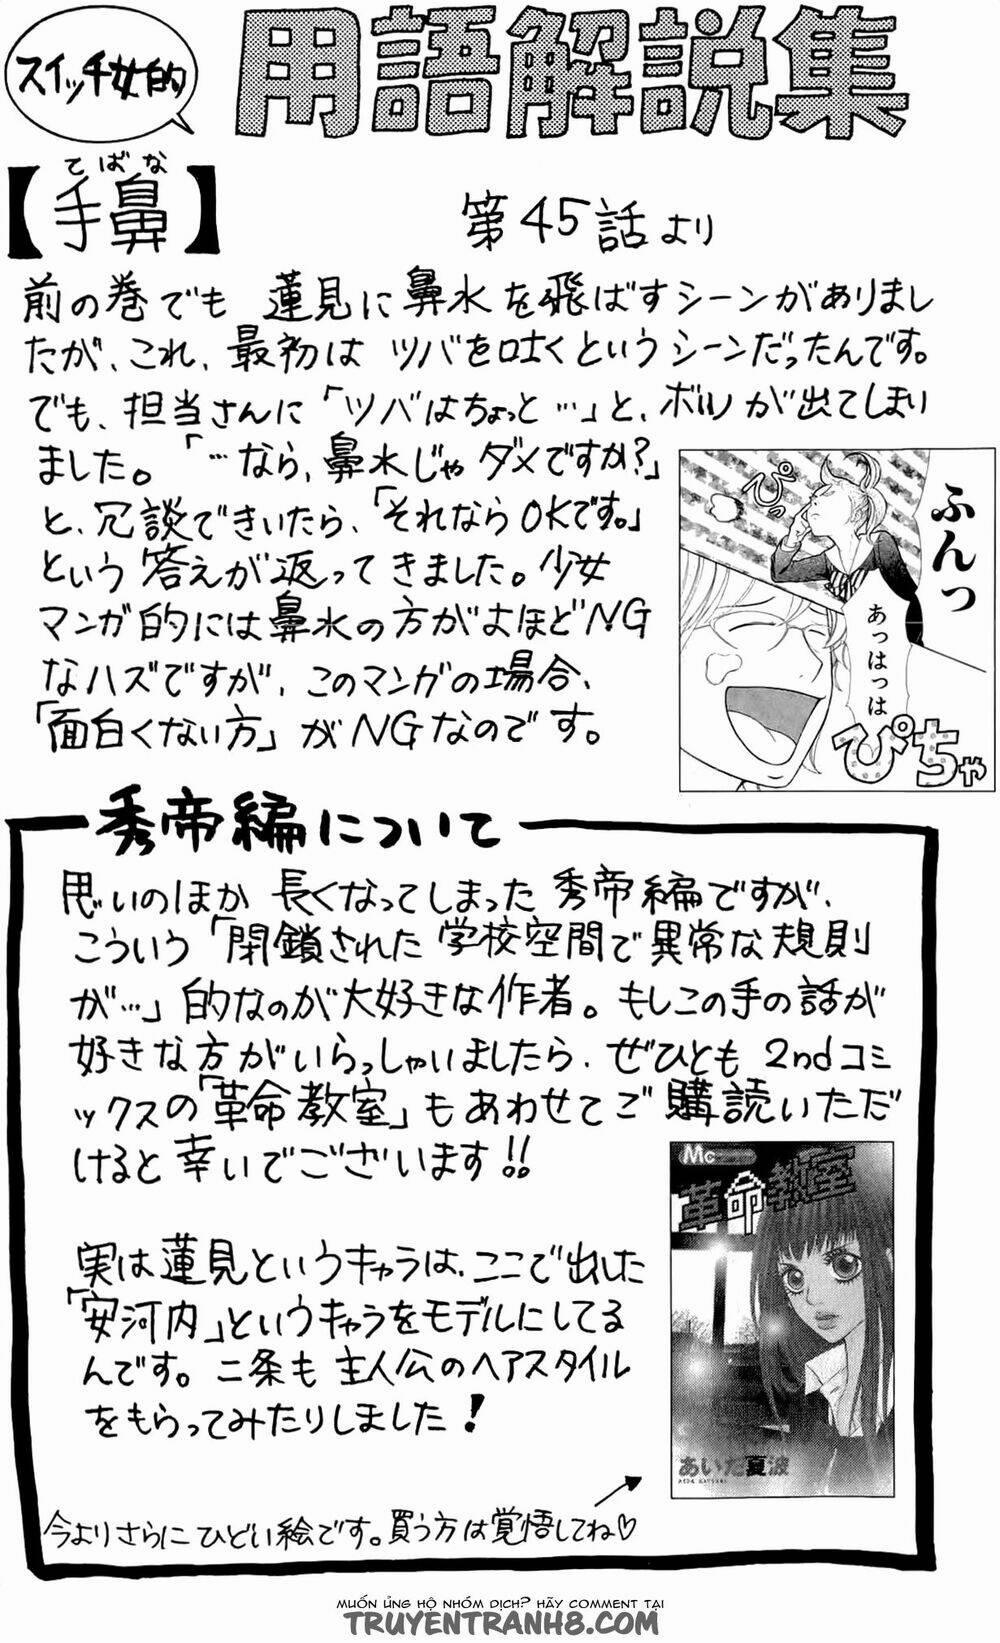 スイッチ女的
用語解説集
てばな
【手鼻】
第45話より
前の巻でも 蓮見に鼻水を飛ばすシーンがありまし
たが、これ、最初は ツバを吐くというシーンだったんです。
でも、担当さんに「ツバはちょっと…」と、ボツが出てしまい
ました。「…なら、鼻水じゃダメですか?」
と、冗談できいたら、「それならOKです。」
という答えが返ってきました。少女
マンガ的には鼻水の方がよほどNG
なハズですが、このマンガの場合、
「面白くない方」がNGなのです。
ぴっ
ふんっ
あっはっは
ぴちゃ
秀帝編について
思いのほか 長くなってしまった 秀帝編ですが、
こういう「閉鎖された学校空間で異常な規則
が…」的なのが大好きな作者。もしこの手の話が
好きな方がいらっしゃいましたら、ぜひとも 2ndコミ
ックスの「革命教室」もあわせてご購読いただ
けると幸いでございます!!
実は蓮見というキャラは、ここで出した
「安河内」というキャラをモデルにしてる
んです。二条も主人公のヘアスタイル
をもらってみたりしました!
Mc
革命教室
あいだ夏波
今よりさらにひどい絵です。買う方は覚悟してね♡
MUỐN ỦNG HỘ NHÓM DỊCH? HÃY COMMENT TẠI
TRUYENTRANH8.COM